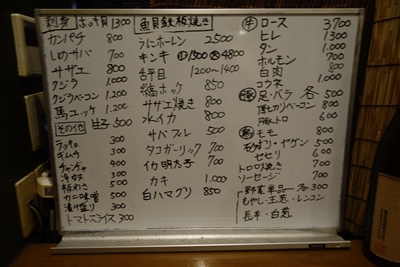 刺身 ホッキ貝 1300
カンパチ 800
しめサバ 700
サザエ 800
クジラ 1000
クジラベーコン 1,200
馬ユッケ 1,200
その他 生子 500
300
キムチ 300
チャンジャ 300
500
板わさ 500
カニ味噌 500
漬け盛り 500
トマトスライス 300
魚貝鉄板焼き
うにホーレン 2500
キンキ 小1500 大4800
舌平目 1200〜1400
縞ホッケ 850
サザエ焼き 800
水イカ 800
サバフレ 500
タコガーリック 700
イカ明太子 700
カキ 1.000
白ハマグリ 850
牛 ロース 3700
ヒレ 1300
タン 1.000
ホルモン 700
白肉 800
コウネ 1.000
豚 足・バラ 各500
厚切りベーコン 800
豚トロ 600
鶏 モモ 800
砂ずり・ヤゲン 500
セセリ 600
トロロ焼き 700
ソーセージ 700
野菜単品 各300
もやし・玉葱・レンコン
長芋・白葱